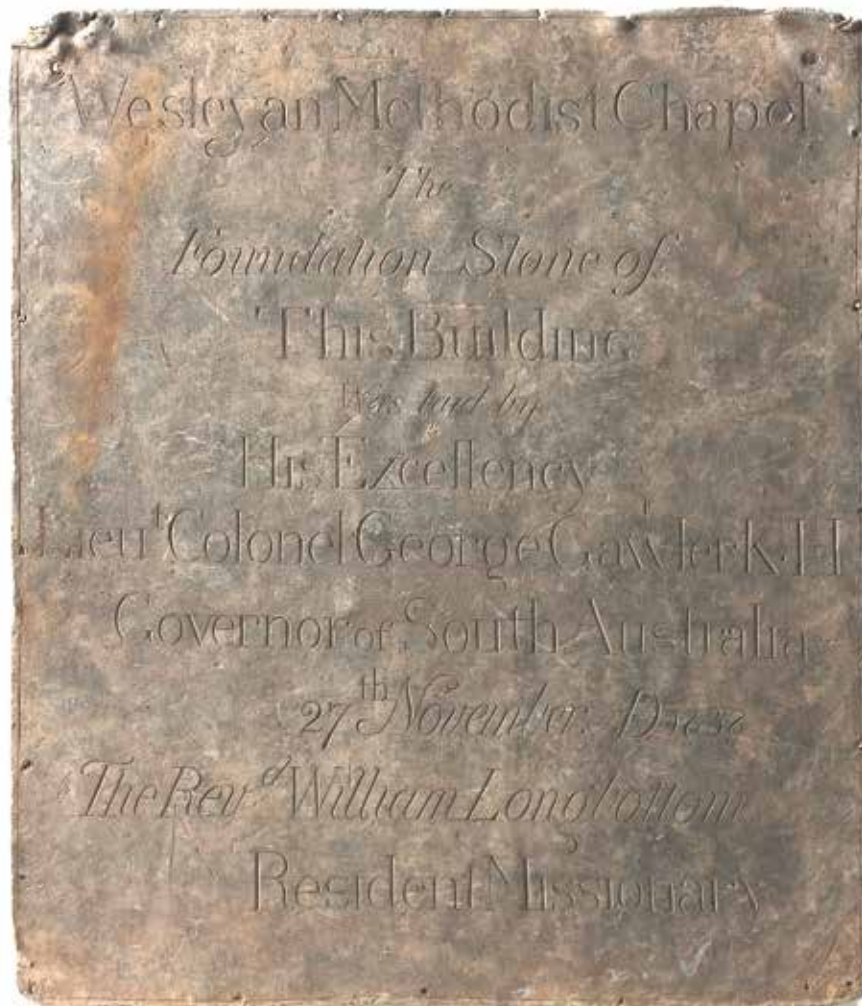 Wesleyan Methodist Chapel
The
Foundation Stone of
This Building
Was laid by
His Excellency
Lieu.t Colonel George Gawler K.H
Governor of South Australia
27th November
The Rev.d William Longbottom
Resident Missionary